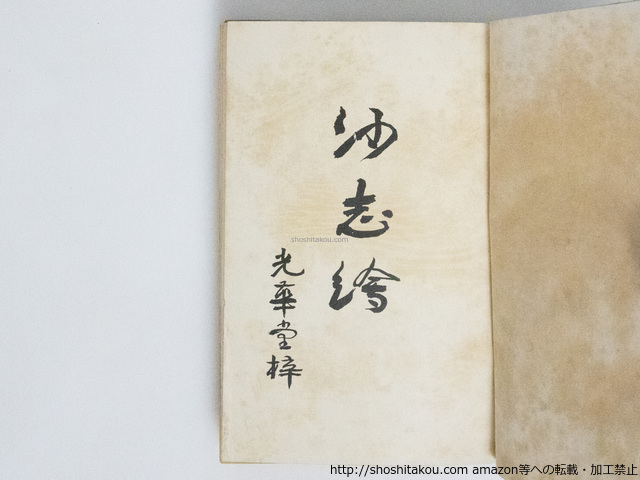 沙志繪
光華堂梓
shoshitakou.com
http://shoshitakou.com amazon等への転載・加工禁止